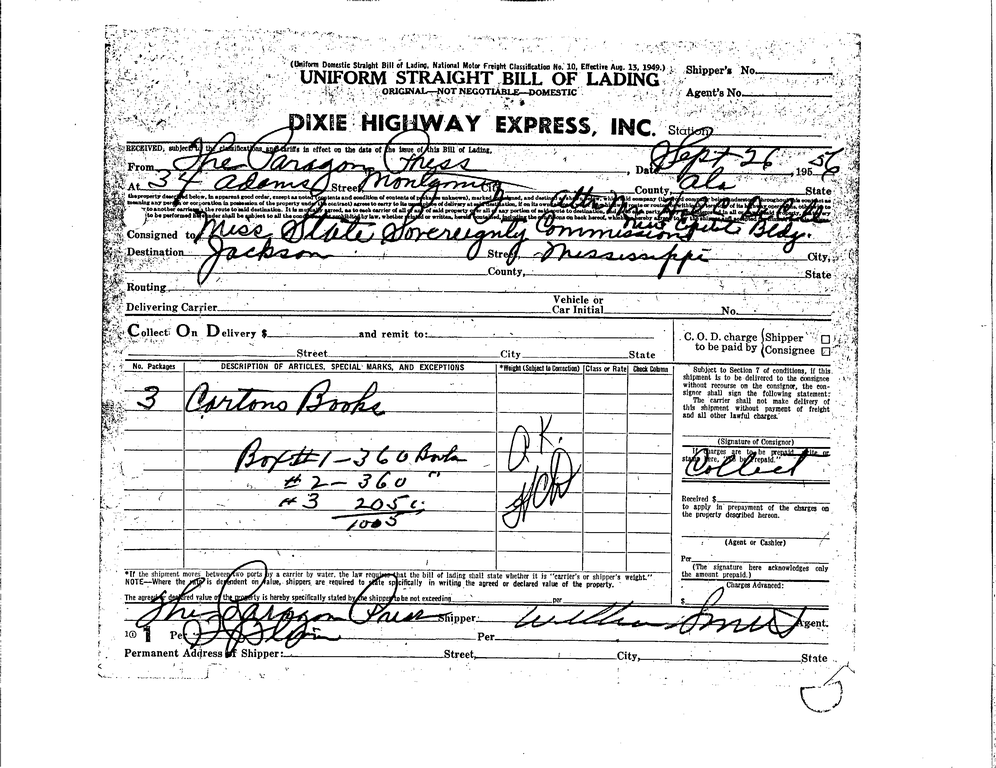 (Uniform Domestic Straight Bill of Lading, National Motor Freight Classification No. 10, Effective Aug. 13, 1949.)
UNIFORM STRAIGHT BILL OF LADING
ORIGINAL—NOT NEGOTIABLE—DOMESTIC
Shipper's No.
Agent's No.
DIXIE HIGHWAY EXPRESS, INC. Station
RECEIVED, subject to the classifications and tariffs in effect on the date of the issue of this Bill of Lading.
From The Paragon Press , Date Sept 26 , 1956
At 34 Adams Street, Montgomery City, County, Ala State
Attn Mr.
New Capitol Bldg.
Consigned to Miss State Sovereignty Commission
Destination Jackson Street, Mississippi City,
County, State
Routing
Delivering Carrier Vehicle or Car Initial No.
Collect On Delivery $ and remit to:
Street City State
C. O. D. charge to be paid by { Shipper ☐ Consignee ☐
No. Packages DESCRIPTION OF ARTICLES, SPECIAL MARKS, AND EXCEPTIONS *Weight (Subject to Correction) Class or Rate Check Column
3 Cartons Books
Box #1 - 360 Books
#2 - 360 "
#3 205
1005
O.K.
Subject to Section 7 of conditions, if this
shipment is to be delivered to the consignee
without recourse on the consignor, the con-
signor shall sign the following statement:
The carrier shall not make delivery of
this shipment without payment of freight
and all other lawful charges.
(Signature of Consignor)
If charges are to be prepaid, write or
stamp here, "To be Prepaid."
Collect
Received $
to apply in prepayment of the charges on
the property described hereon.
(Agent or Cashier)
Per
(The signature here acknowledges only
the amount prepaid.)
Charges Advanced:
$
*If the shipment moves between two ports by a carrier by water, the law requires that the bill of lading shall state whether it is "carrier's or shipper's weight."
NOTE—Where the rate is dependent on value, shippers are required to state specifically in writing the agreed or declared value of the property.
The agreed or declared value of the property is hereby specifically stated by the shipper to be not exceeding per
The Paragon Press Shipper. William Agent.
1 Per Per
Permanent Address of Shipper: Street, City, State